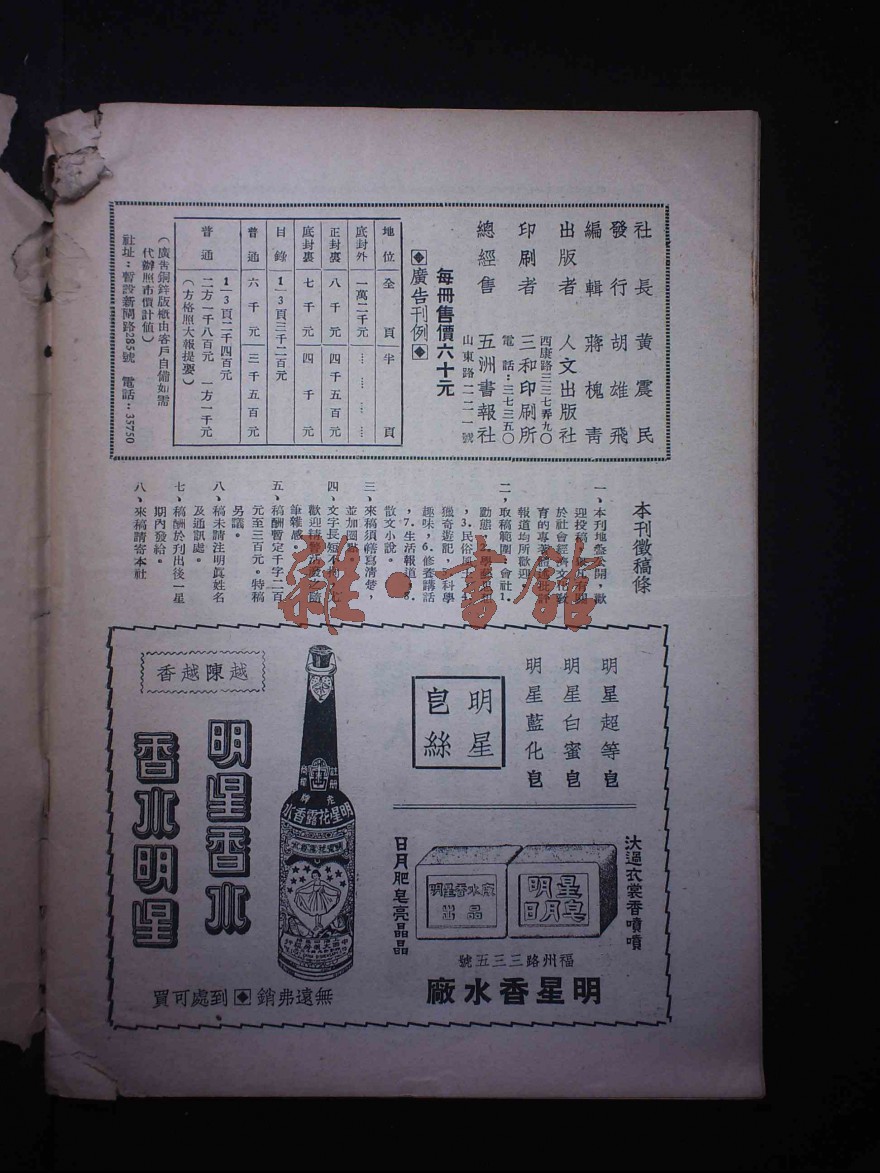 社長 黃震民
發行 胡雄飛
編輯 蔣槐青
出版者 人文出版社
西康路三三七弄九〇
印刷者 三和印刷所
電話：三七三五〇
總經售 五洲書報社
山東路二二一號
每冊售價六十元
◆廣告刊例◆
地位 全頁 半頁
底封外 一萬二千元 …………
正封裏 八千元 四千五百元
底封裏 七千元 四千元
目錄 1|3頁三千二百元
普通 六千元 三千五百元
普通 1|3頁二千四百元
二方二千八百元 一方一千元
（方格照大報提要）
（廣告銅鋅版概由客戶自備如需
代辦照市價計值）
社址：暫設新閘路285號 電話：35750
本刊徵稿條
一、本刊地盤公開，歡
迎投稿
於社會經濟文化教
育的專著
報道均所歡迎
二、取稿範圍：會社1.
動態
，3.民俗風土
獵奇遊記，科學
趣味，6.修養講話
，7.生活報道，8.
散文小說。
三、來稿須繕寫清楚，
並加圈點。
四、文字長短不拘，尤
歡迎
筆雜感。
五、稿酬暫定千字二百
元至三百元。特稿
另議。
八、稿末請注明眞姓名
及通訊處。
七、稿酬於刋出後一星
期內發給。
八、來稿請寄本社
雜·書館
明星超等皂
明星白蜜皂
明星藍化皂
明星
皂絲
汏過衣裳香噴噴
明星
日月皂
明星香水廠
出品
日月肥皂亮晶晶
福州路三三五號
明星香水廠
越陳越香
明星香水
香水明星
註冊
商標
老牌
明星花露香水
無遠弗銷◆到處可買